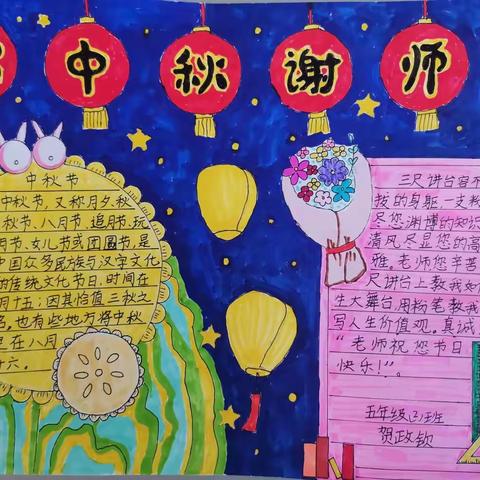 中秋谢师
中秋节
中秋节，又称月夕、秋
秋节、八月节、追月节、玩
月节、女儿节或团圆节，是
中国众多民族与汉字文化
的传统文化节日，时间在
月十五；因其恰值三秋之
名，也有些地方将中秋
定在八月
十六。
三尺讲台容不
拔的身躯一支粉
尽您渊博的知识
清风尽显您的高
雅。老师您辛苦
尺讲台上教我如何
生大舞台，用粉笔教我
写人生价值观。真诚
“老师祝您节日
快乐！”。
五年级(3)班
贺政钦